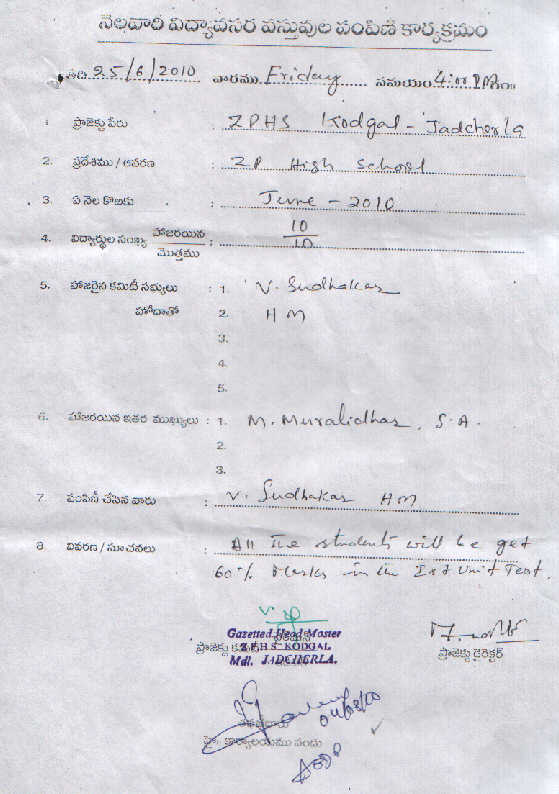 నెలవారి విద్యావసర వస్తువుల పంపిణి కార్యక్రమం
తేది 25/6/2010 వారము Friday సమయం 4:00 PM గం॥
1. ప్రాజెక్టు పేరు : ZPHS Kodgal - Jadcherla
2. ప్రదేశము / ఆవరణ : ZP High School
3. ఏ నెల కొఱకు : June - 2010
4. విద్యార్థుల సంఖ్య హాజరయిన : 10
మొత్తము 10
5. హాజరైన కమిటీ సభ్యులు : 1. V. Sudhakar
హోదాతో 2. HM
3.
4.
5.
6. హాజరయిన ఇతర ముఖ్యులు : 1. M. Muralidhar, S.A.
2.
3.
7. పంపిణీ చేసిన వారు : V. Sudhakar HM
8. వివరణ / సూచనలు : All the students will be get
60% Marks in the Ist Unit Test.
Gazetted Head Master
ప్రాజెక్టు Z.P.H.S KODGAL ప్రాజెక్టు డైరెక్టర్
Mdl. JADCHERLA.
కార్యాలయము పంపు